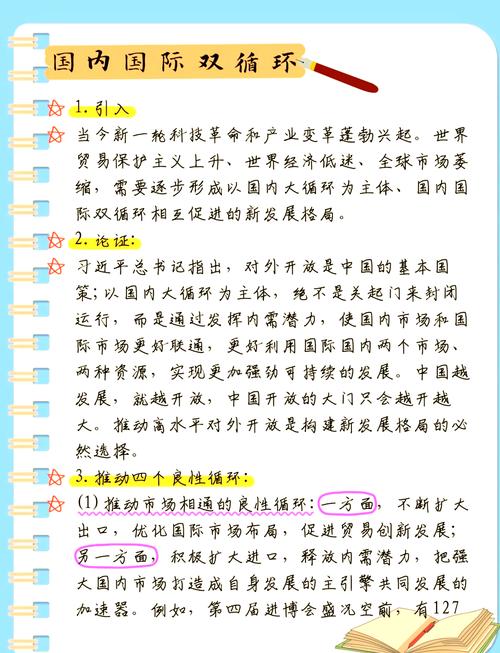 国内国际双循环
1.引入
当今新一轮科技革命和产业变革蓬勃兴起。世界
贸易保护主义上升、世界经济低迷、全球市场萎
缩，需要逐步形成以国内大循环为主体、国内国
际双循环相互促进的新发展格局。
2.论证:
习近平总书记指出，对外开放是中国的基本国
策;以国内大循环为主体，绝不是关起门来封闭
运行，而是通过发挥内需潜力，使国内市场和国
际市场更好联通，更好利用国际国内两个市场、
两种资源，实现更加强劲可持续的发展。中国越
发展，就越开放，中国开放的大门只会越开越
大。推动高水平对外开放是构建新发展格局的必
然选择。
3.推动四个良性循环:
(1)推动市场相通的良性循环:一方面，不断扩大
出口，优化国际市场布局，促进贸易创新发展;
另一方面，积极扩大进口，释放内需潜力，把强
大国内市场打造成自身发展的主引擎共同发展的
加速器。例如，第四届进博会盛况空前，有127